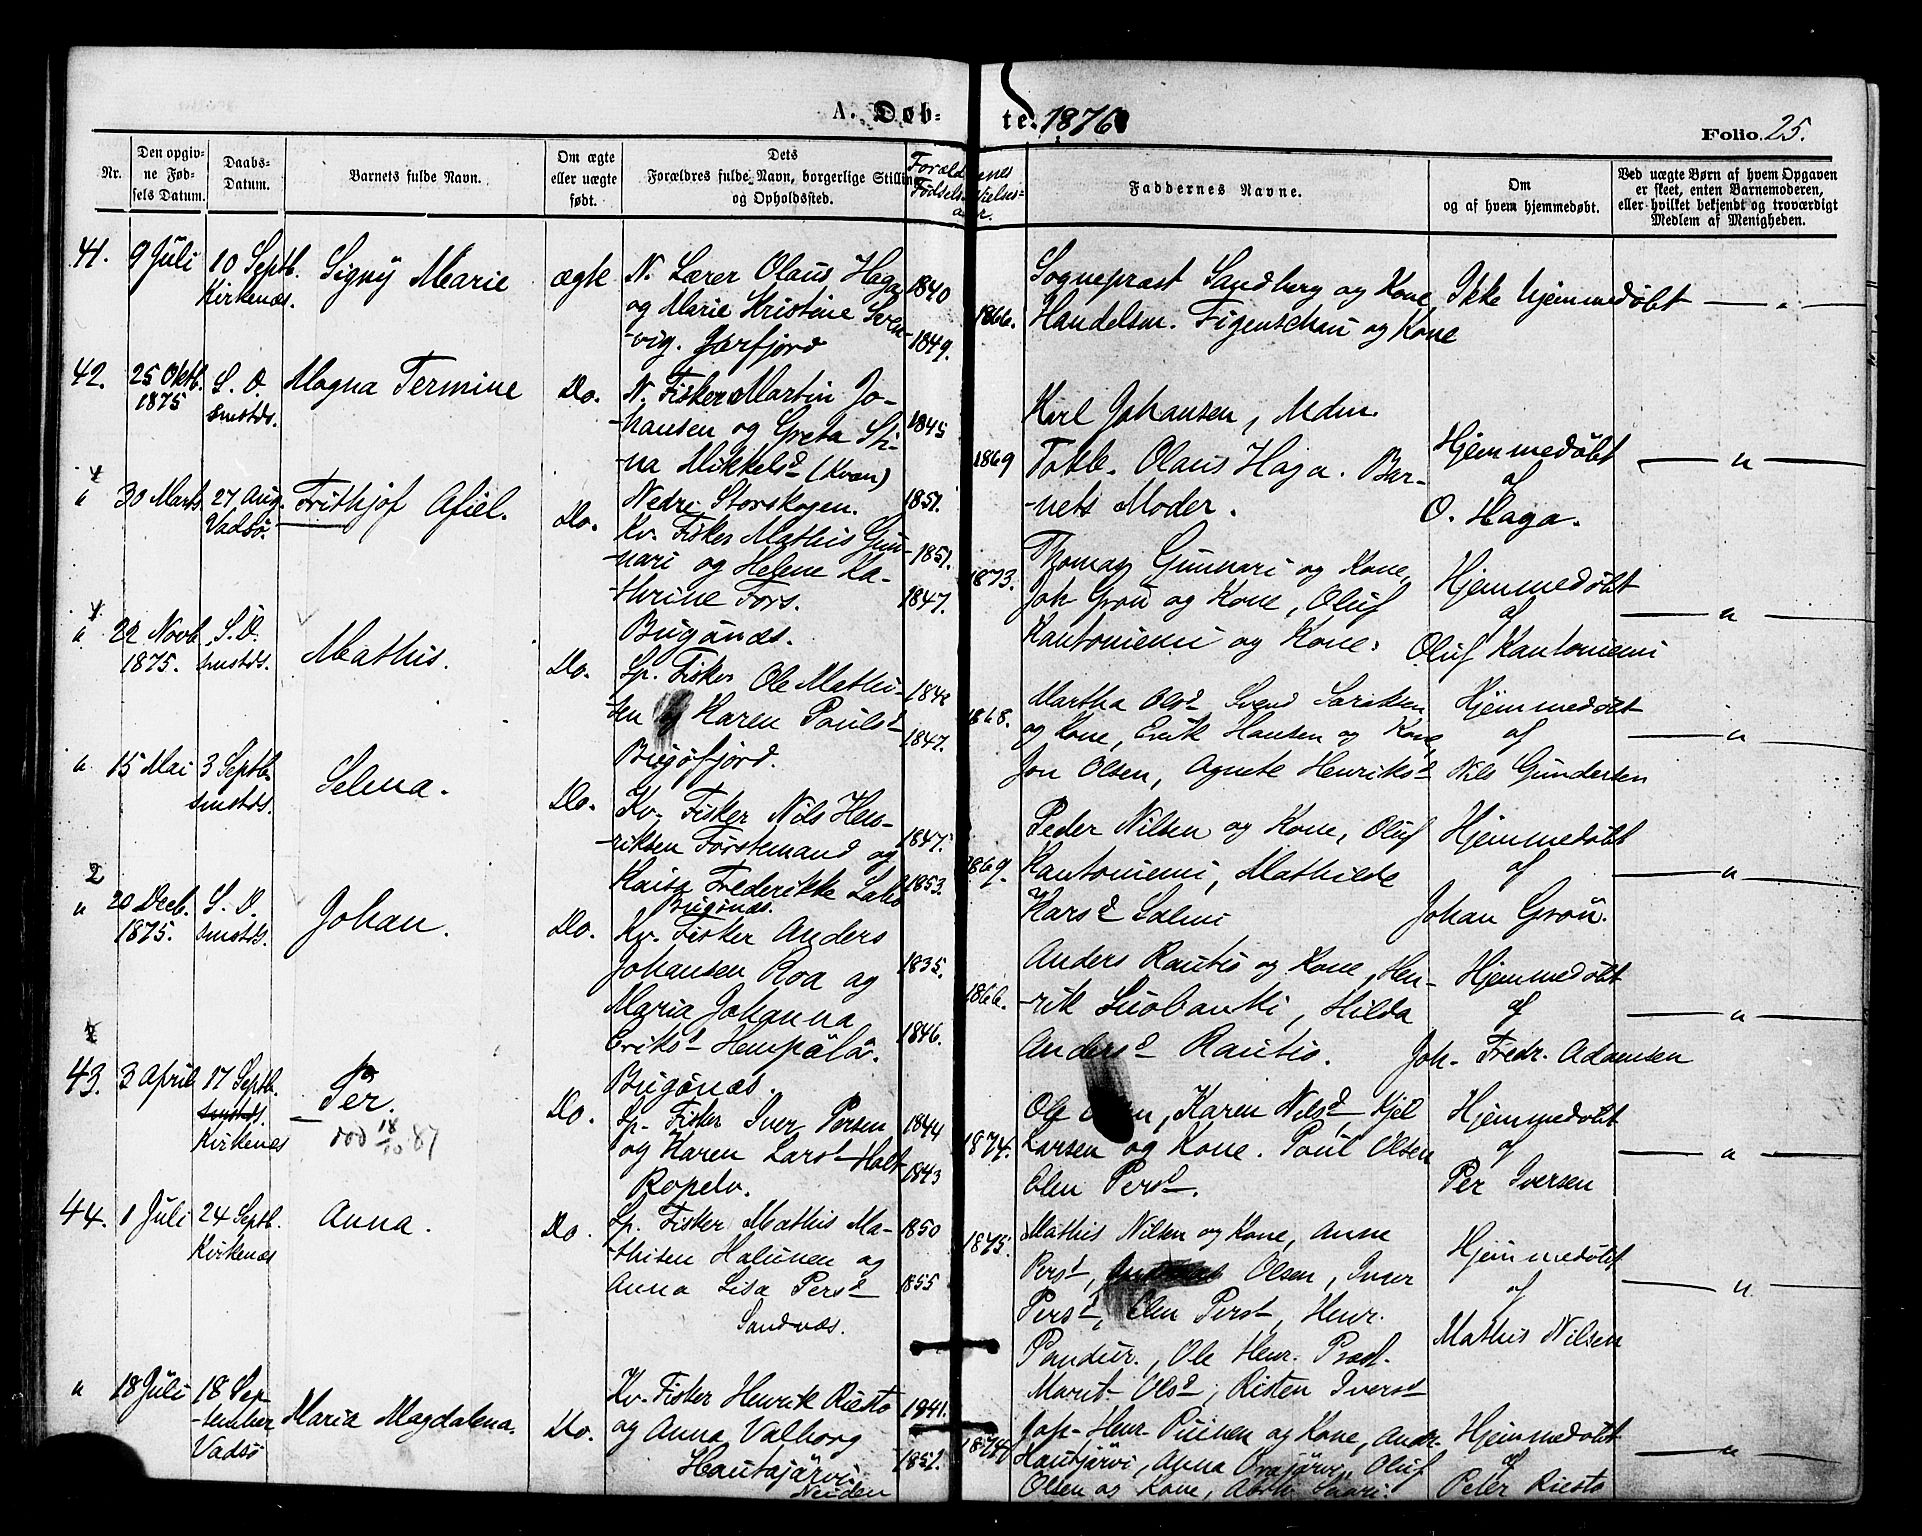 A. Døb-
te. 1876
Folio. 25.
Nr.
Den opgiv-
ne Fød-
sels Datum.
Daabs-
Datum.
Barnets fulde Navn.
Om ægte
eller uægte
født.
Dets
Forældres fulde Navn, borgerlige Stilling
og Opholdssted.
Forældrenes
Fødsels-
Vielses-
aar.
Faddernes Navne.
Om
og af hvem hjemmedøbt.
Ved uægte Børn af hvem Opgaven
er skeet, enten Barnemoderen,
eller hvilket bekjendt og troværdigt
Medlem af Menigheden.
41.
9 Juli
10 Septb.
Kirkenæs.
Signy Marie
ægte
N. Lærer Olaus Haga
og Marie Kristine Sven-
-vig. Jarfjord
1840
1849.
1866.
Sogneprest Sandberg og Kone
Handelsm. Figenschau og Kone
Ikke hjemmedøbt
— " —
42.
25 Oktb.
1875
S. D.
smstds.
Magna Termine
Do.
N. Fisker Martin Jo-
-hansen og Greta Sti-
na Mikkelsd (Kvæn)
Nedre Storskogen.
1845
1851.
1869
Karl Johansen, Mdm.
Tobb. Olaus Haga. Bar-
nets Moder.
Hjemmedøbt
af
O. Haga.
— " —
"
30 Marts
27 Aug.
Vadsø.
Frithjof Afiel.
Do.
Kv. Fisker Mathis Gun-
nari og Helene Ka-
thrine Fors.
Bugønæs.
1851.
1847.
1873.
Thomas Gunnari og Kone,
Joh Grøn og Kone, Oluf
Kantoniemi og Kone.
Hjemmedøbt
af
Oluf Kantoniemi
— " —
"
22 Novb.
1875.
S. D.
smstds.
Mathis.
Do.
Lp. Fisker Ole Mathi-
sen og Karen Poulsd
Bugøfjord.
1847.
1868.
Martha Olsd Svend
og Kone, Erik Hansen og Kone
Jon Olsen, Agnete Henriksd
Hjemmedøbt
af
Nils Gundersen
— " —
"
15 Mai
3 Septb.
smstds.
Selma.
Do.
Kv. Fisker Nils Hen-
-riksen Førstemand og
Kaisa Frederikke
Bugønæs.
1847.
1853.
1869.
Peder Nilsen og Kone, Oluf
Kantoniemi, Mathilde
Karsd Salmi
Hjemmedøbt
af
Johan Grøn.
— " —
2
"
20 Decb.
1875.
S. D.
smstds.
Johan.
Do.
Kv. Fisker Anders
Johansen Roa og
Maria Johanna
Eriksd Hempälä.
Bugønæs.
1835.
1846.
1866.
Anders Rautio og Kone, Hen-
-rik, Hilda
Andersd Rautio.
Hjemmedøbt
af
Joh. Fredr. Adamsen
— " —
43.
3 April
17 Septb.
smstds.
Kirkenæs
Per.
død 18/10 87
Do.
Lp. Fisker Iver Persen
og Karen Larsd Holt
Ropelv.
1844
1843
1874.
Ole, Karen Nilsd, Kjel
Larsen og Kone. Poul Olsen
Elen Persd.
Hjemmedøbt
af
Per Iversen
— " —
44.
1 Juli
24 Septb.
Kirkenæs
Anna.
Do.
Lp. Fisker Mathis Ma-
-thisen Halunen og
Anna Lisa Persd
Sandnæs.
1850
1855
1875.
Mathis Nilsen og Kone, Anne
Persd, Olsen, Inger
Persd, Elen Persd, Henr.
Pandur., Ole Henr. Præst.
Marit Olsd, Risten Iversd
Hjemmedøbt
af
Mathis Nilsen
— " —
"
18 Juli
18 Sep-
-tember
Vadsø
Maria Magdalena.
Do.
Kv. Fisker Henrik Riesto
og Anna Valborg
Hautajärvi.
Neiden
1841.
1851.
1874
Joh. Henr. og Kone, Andr.
Hautjärvi, Anna, Oluf
Olsen og Kone,
Hjemmedøbt
af
Peter Riesto
— " —